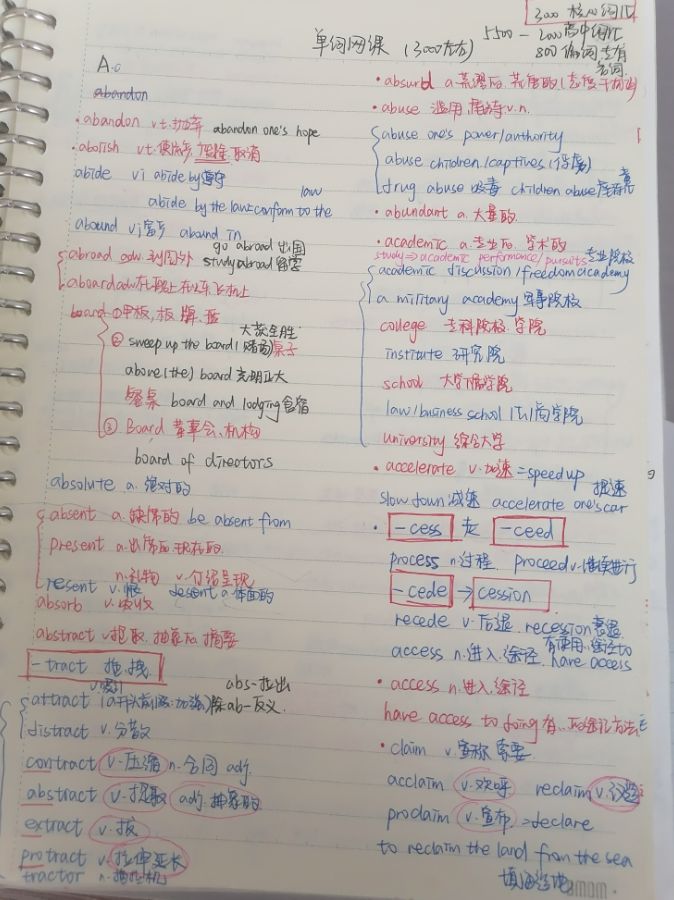 3000 核心词汇
单词网课 (3000左右)
5500 - 2000高中词汇
800 偏词 专有
名词
A.
abandon
·abandon vt. 放弃 abandon one's hope
·abolish vt. 废除 取消
abide vi abide by 遵守
abide by the law=conform to the law
abound vi 富于 abound in
go abroad 出国
abroad adv. 到国外 study abroad 留学
aboard adv. 在船上 在火车飞机上
board ①甲板, 板 牌. 盖
大获全胜
② sweep up the board (赌场) 桌子
above (the) board 光明正大
餐桌 board and lodging 食宿
③ Board 董事会、机构
board of directors
absolute a. 绝对的
absent a. 缺席的 be absent from
present a. 出席的 现在的
n. 礼物 v. 介绍呈现
resent v. 恨 decent a. 体面的
absorb v. 吸收
abstract v 提取. 抽象的 摘要
-tract 拖. 拽
abs-拉出
attract (a开头前缀:加强) 除ab-反义
distract v. 分散
contract v. 压缩 n. 合同 adj.
abstract v. 提取 adj. 抽象的
extract v. 拔
protract v. 拉伸延长
tractor n. 拖拉机
·absurd a. 荒谬的. 荒唐的
·abuse 滥用. 虐待 v. n.
abuse one's power/authority
abuse children/captives (俘虏)
drug abuse 吸毒 children abuse 虐待儿童
·abundant a. 大量的
·academic a. 专业的. 学术的
study → academic performance/pursuits 专业院校
academic discussion/freedom academy
a military academy 军事院校
college 专科院校 学院
institute 研究院
school 大学下属学院
law/business school 法/商学院
university 综合大学
·accelerate v. 加速 = speed up 提速
slow down 减速 accelerate one's car
·-cess 走 -ceed
process n. 过程. proceed v. 继续进行
-cede → cession
recede v. 后退. recession 衰退
access n. 进入. 途径. 有使用..途径to have access
·access n. 进入. 途径
have access to doing 有...
·claim v. 宣称 需要
acclaim v. 欢呼 reclaim v.
proclaim v. 宣布 =declare
to reclaim the land from the sea
填海造地